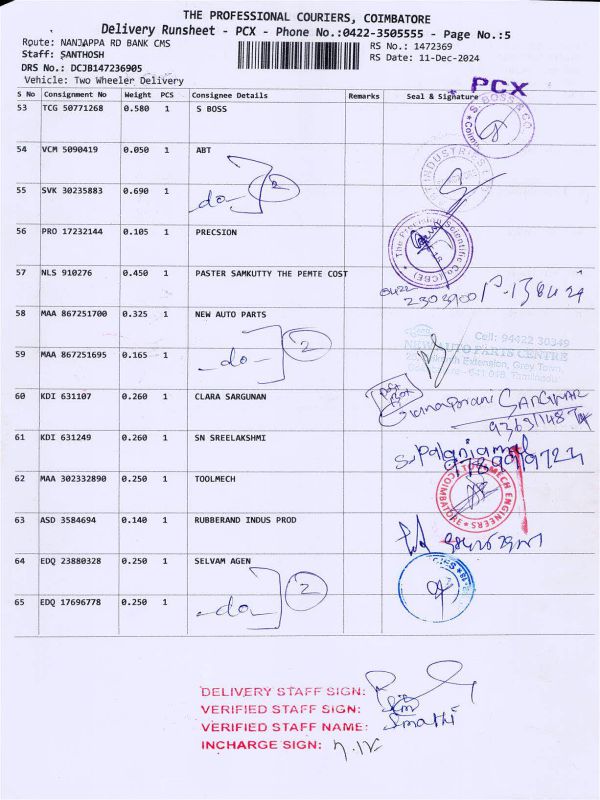 THE PROFESSIONAL COURIERS, COIMBATORE
Delivery Runsheet - PCX - Phone No.:0422-3505555 - Page No.:5
Route: NANJAPPA RD BANK CMS
RS No.: 1472369
Staff: SANTHOSH
RS Date: 11-Dec-2024
DRS No.: DCJB147236905
Vehicle: Two Wheeler Delivery
PCX
S No Consignment No Weight PCS Consignee Details Remarks Seal & Signature
53 TCG 50771268 0.580 1 S BOSS
S. BOSS & CO
54 VCM 5090419 0.050 1 ABT
INDUSTRIES
55 SVK 30235883 0.690 1 -do- 2
56 PRO 17232144 0.105 1 PRECSION
The Precision Scientific Co (CBE)
57 NLS 910276 0.450 1 PASTER SAMKUTTY THE PEMTE COST
0422
2303900
58 MAA 867251700 0.325 1 NEW AUTO PARTS
Cell: 94422 30349
NEW AUTO PARTS CENTRE
Extension, Grey Town,
641 018, Tamilnadu
59 MAA 867251695 0.165 1 -do- 2
60 KDI 631107 0.260 1 CLARA SARGUNAN
Gnanaprani SARGUNAR
61 KDI 631249 0.260 1 SN SREELAKSHMI
S. Palaniammal
62 MAA 302332890 0.250 1 TOOLMECH
TOOLMECH ENGINEERS
COIMBATORE
63 ASD 3584694 0.140 1 RUBBERAND INDUS PROD
64 EDQ 23880328 0.250 1 SELVAM AGEN
65 EDQ 17696778 0.250 1 -do- 2
DELIVERY STAFF SIGN:
VERIFIED STAFF SIGN:
VERIFIED STAFF NAME: Smathi
INCHARGE SIGN: